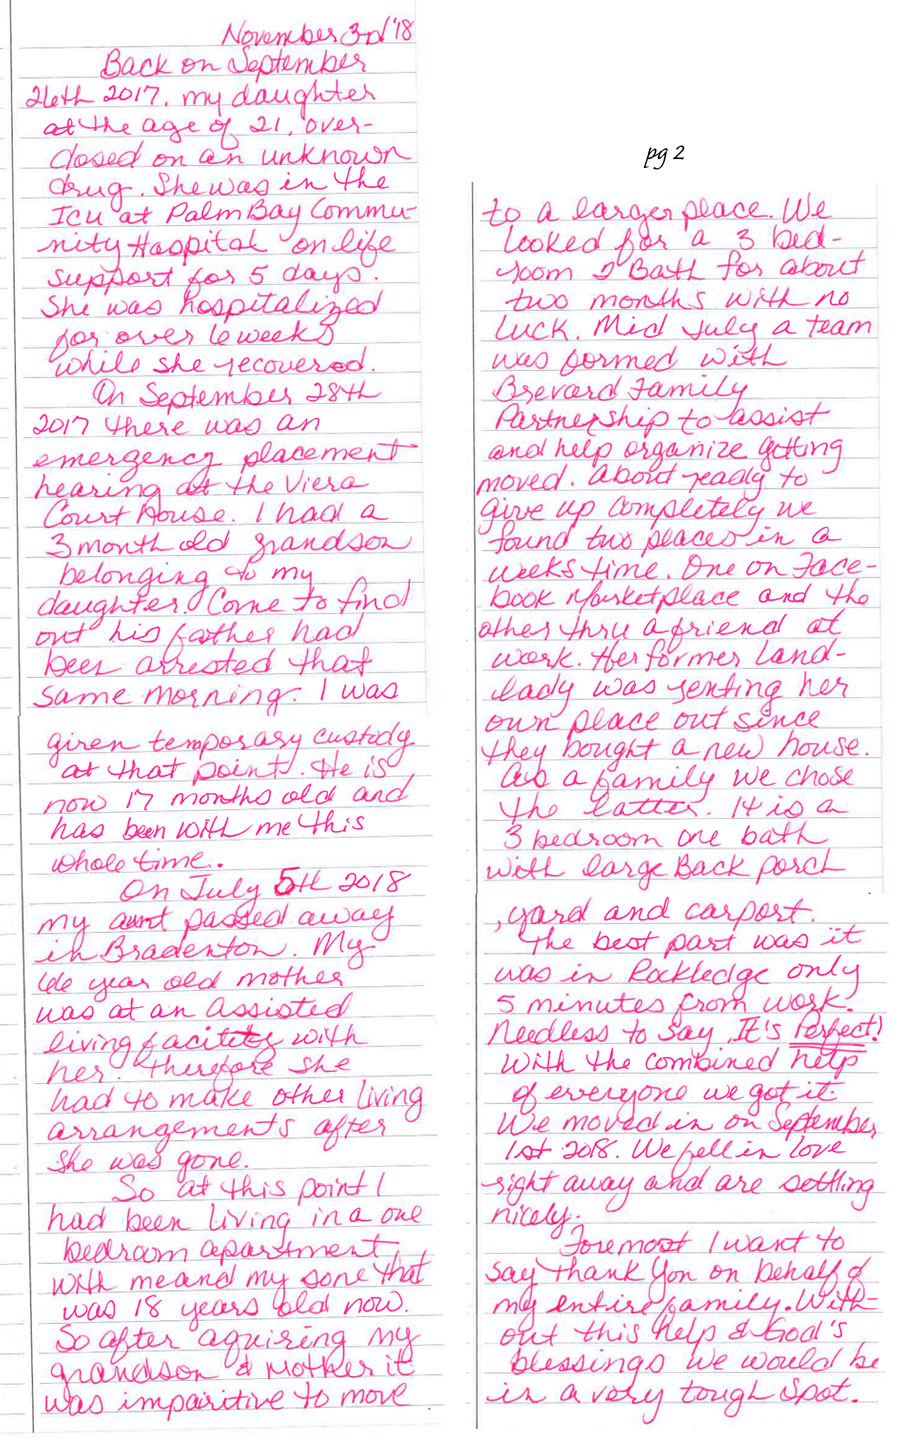 November 3rd '18
Back on September
26th 2017, my daughter
at the age of 21, over-
dosed on an unknown
drug. She was in the
Icu at Palm Bay Commu-
nity Hospital on life
support for 5 days.
She was hospitalized
for over 6 weeks
while she recovered.
On September 28th
2017 there was an
emergency placement
hearing at the Viera
Court House. I had a
3 month old grandson
belonging to my
daughter. Come to find
out his father had
been arrested that
same morning. I was
given temporary custody
at that point. He is
now 17 months old and
has been with me this
whole time..
On July 5th 2018
my aunt passed away
in Bradenton. My
66 year old mother
was at an Assisted
living facility with
her. Therefore she
had to make other living
arrangements after
she was gone.
So at this point I
had been living in a one
bedroom apartment
with me and my sone that
was 18 years old now.
So after aquiring my
grandson & Mother it
was imparitive to move
pg 2
to a larger place. We
looked for a 3 bed-
room 2 Bath for about
two months with no
luck. Mid July a team
was formed with
Brevard Family
Partnership to assist
and help organize getting
moved. About ready to
give up completely we
found two places in a
weeks time. One on Face-
book Marketplace and the
other thru a friend at
work. Her former land-
lady was renting her
own place out since
they bought a new house.
As a family we chose
the latter. It is a
3 bedroom one bath
with large Back porch
, yard and carport.
The best part was it
was in Rockledge only
5 minutes from work.
Needless to say, It's Perfect!
With the combined help
of everyone we got it.
We moved in on September
1st 2018. We fell in love
right away and are settling
nicely.
Foremost I want to
say thank you on behalf of
my entire family. With-
out this help & God's
blessings we would be
in a very tough spot.